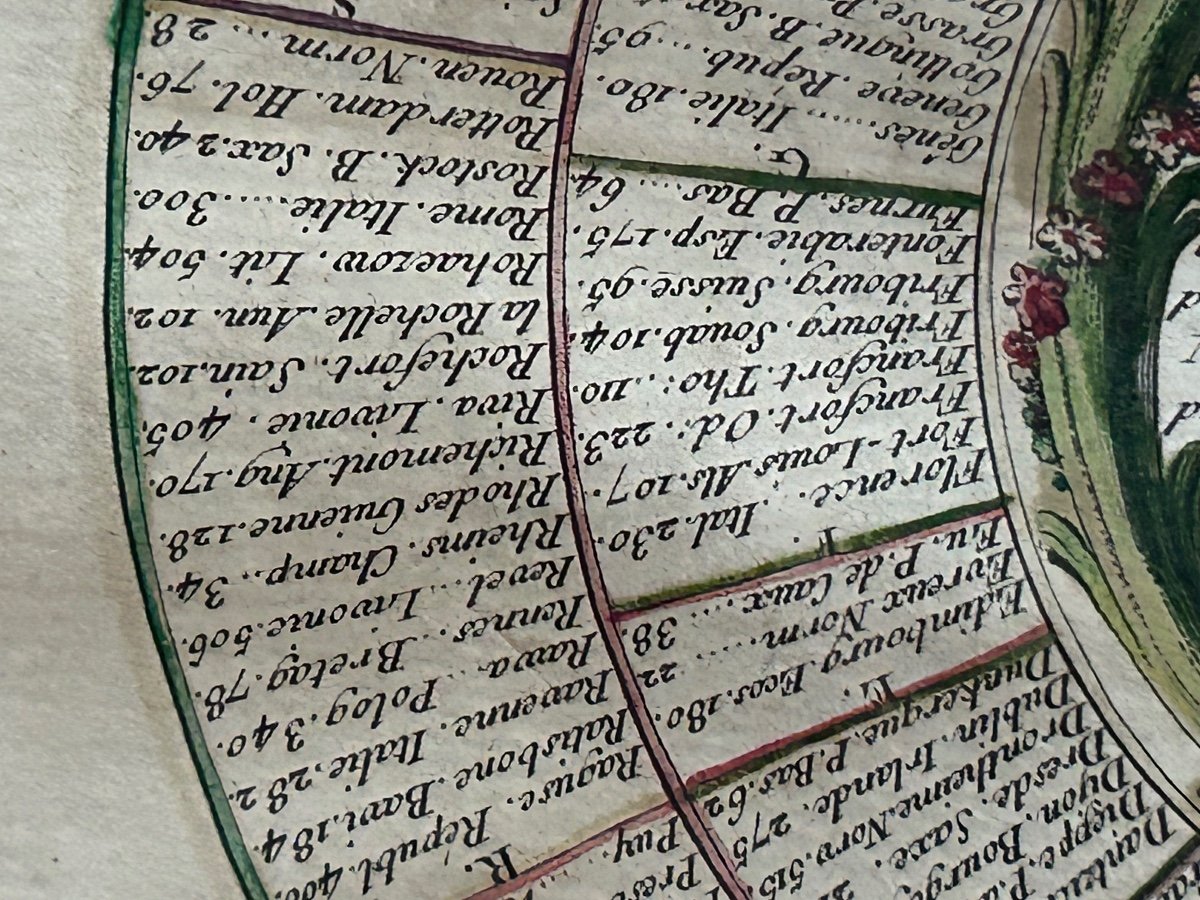 Dieppe. P.d
Dijon. Bourg
Dresde. Saxe.
Drontheime. Norv. 515
Dublin. Irlande. 275
Dunkerque. P. Bas. 62
E.
Edimbourg. Ecos. 180.
Evreux Norm.... 22
Eu. P. de Caux.... 38.
F.
Florence... Ital. 230.
Fort-Louis Als. 107.
Francfort. Od:. 223.
Francfort. Tho:. 110.
Fribourg. Souab. 104.
Fribourg. Suisse. 95.
Fonterabie. Esp. 175.
Furnes. P. Bas.... 64.
G.
Gênes..... Italie. 180.
Geneve. Repub.... 95.
Gottingue. B. Sax
Grasse. P
Puy.
R.
Raguse. Republ. 400
Ratisbone. Bavi. 184.
Ravenne. Italie. 282.
Rawa... Polog. 340.
Rennes... Bretag. 78.
Revel... Livonie. 506.
Rheims. Champ.. 34.
Rhodes Guienne. 128.
Richemont. Ang. 170.
Riva. Livonie. 405.
Rochefort. Sain. 102.
la Rochelle. Aun. 102.
Rohaczow. Lit. 504.
Rome. Italie..... 300.
Rostock. B. Sax. 240.
Rotterdam. Hol. 76.
Rouen. Norm.... 28.
S